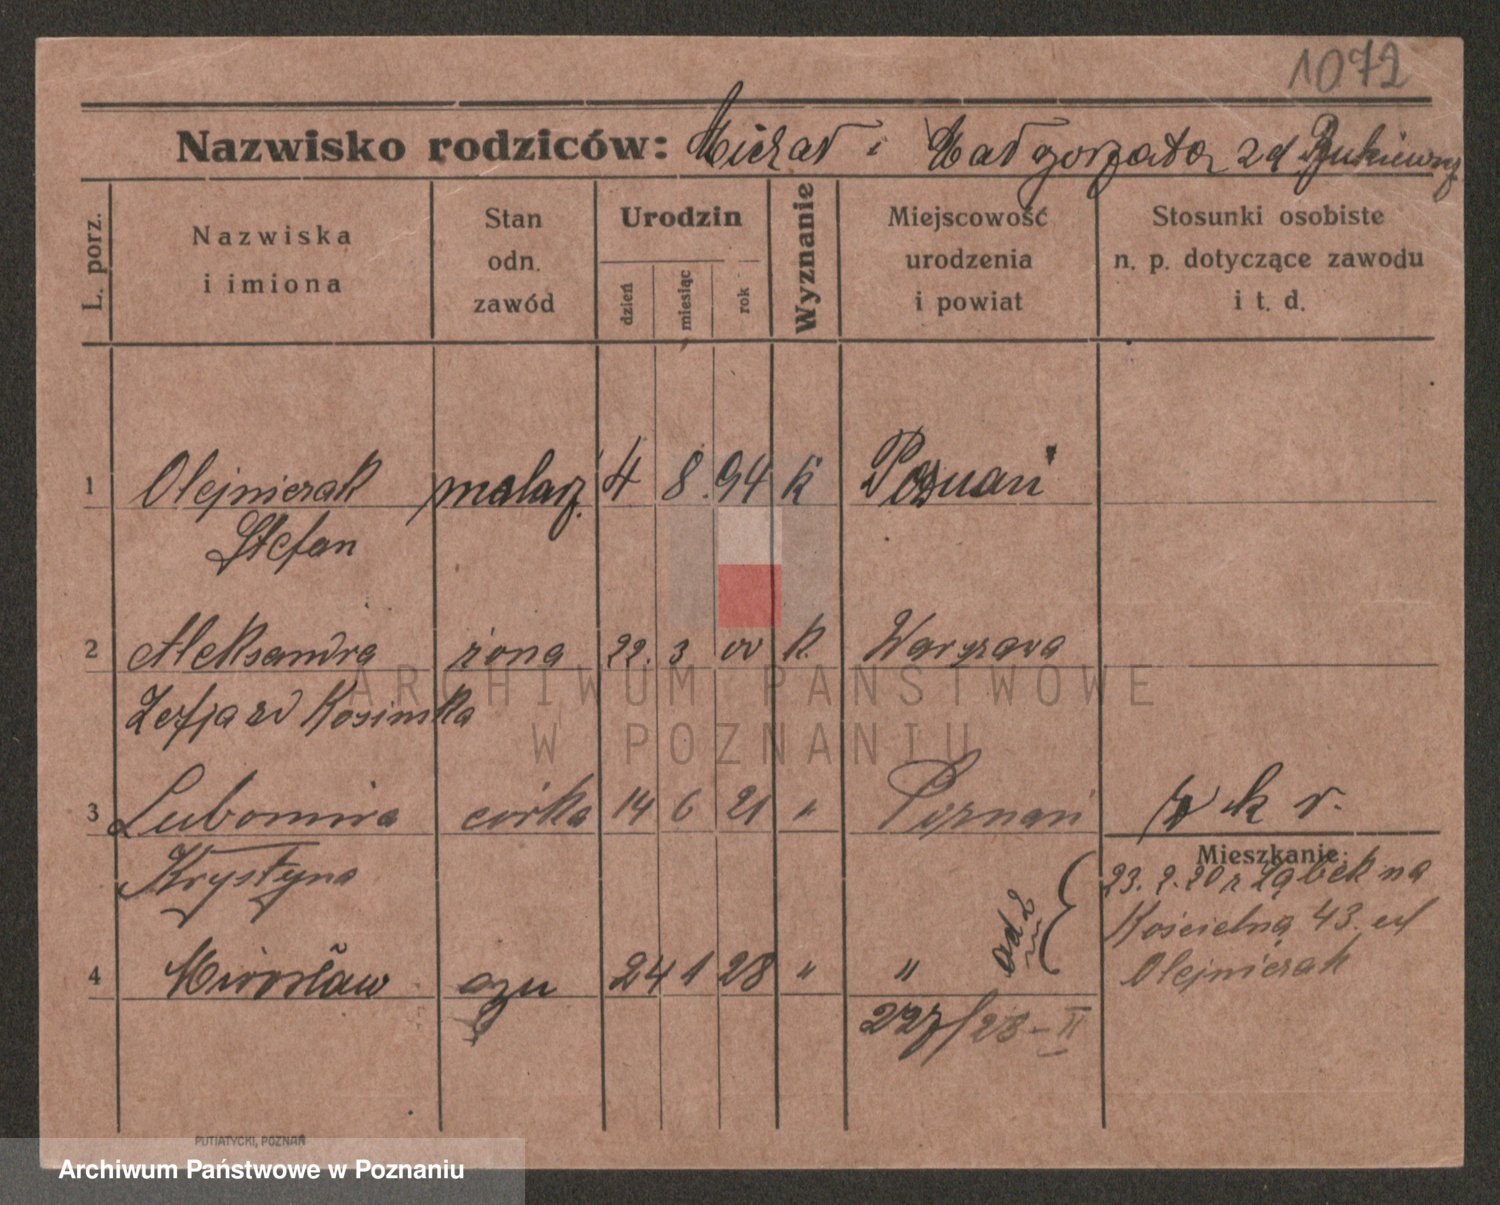 1072
Nazwisko rodziców: Michał i Małgorzata zd.
L. porz.
Nazwiska i imiona
Stan odn. zawód
Urodzin
dzień
miesiąc
rok
Wyznanie
Miejscowość urodzenia i powiat
Stosunki osobiste n. p. dotyczące zawodu i t. d.
1 Olejniczak malarz 4 8. 94 k Poznań
Stefan
2 Aleksandra żona 22. 3 00 k. Warszawa
Zofja zd Kosinska
3 Lubomira córka 14 6 21 " Poznań
Krystyna
Mieszkanie:
23. 2. 20 z na
Kościelną 43.
Olejniczak
4 Mirosław syn 24 1 28 " "
227/28-II
ARCHIWUM PAŃSTWOWE
W POZNANIU
PUTIATYCKI, POZNAŃ
Archiwum Państwowe w Poznaniu